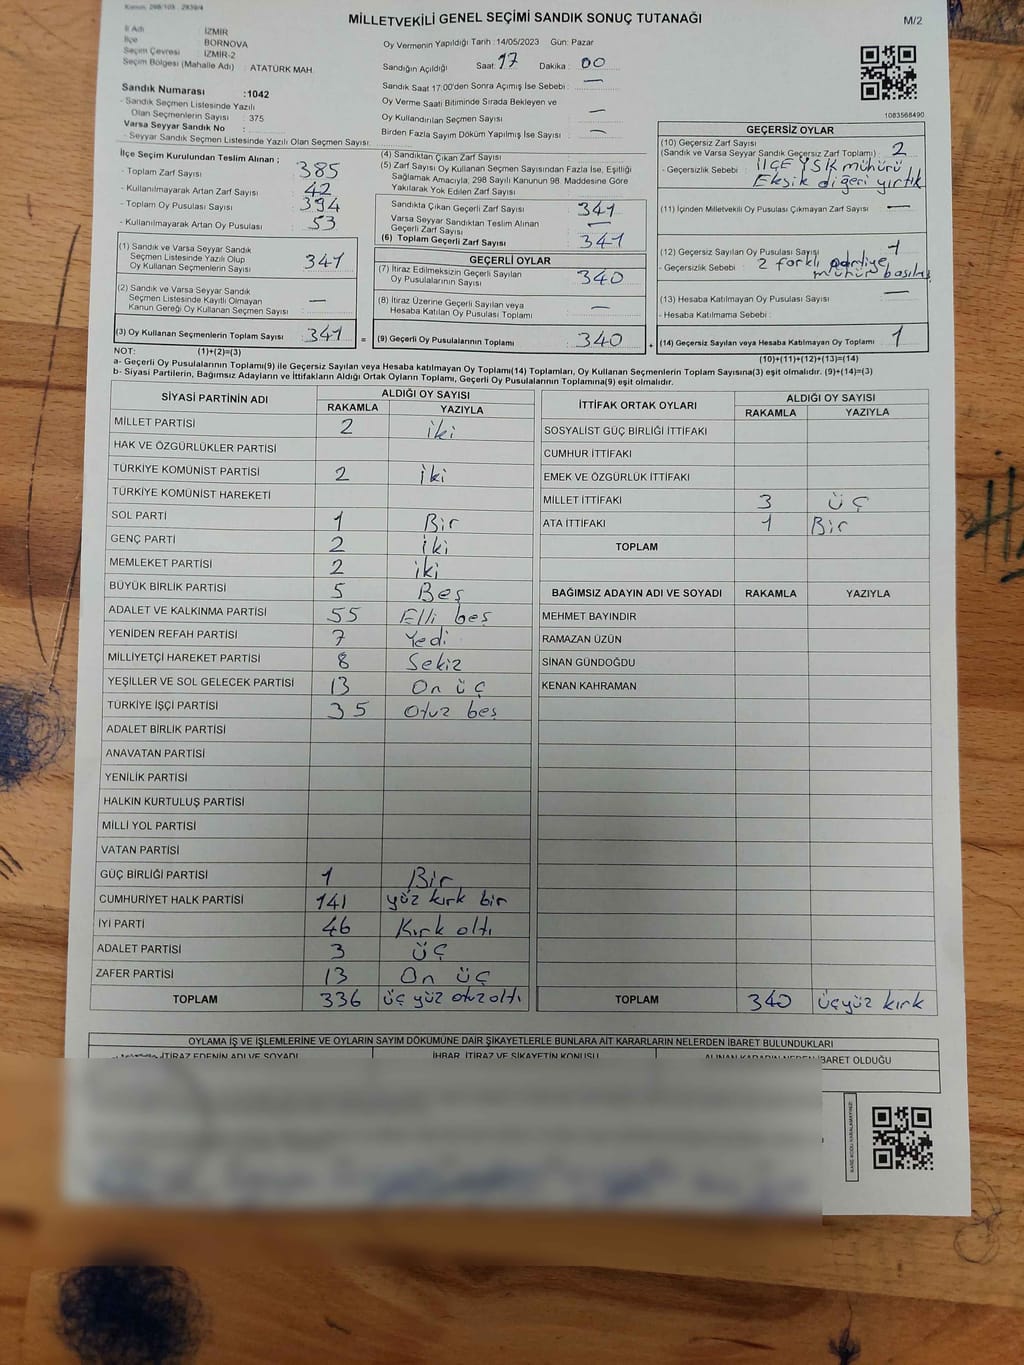 Kanun, 298/105 , 2839/4
MİLLETVEKİLİ GENEL SEÇİMİ SANDIK SONUÇ TUTANAĞI
M/2
İl Adı : İZMİR
İlçe : BORNOVA
Seçim Çevresi : İZMİR-2
Seçim Bölgesi (Mahalle Adı) : ATATÜRK MAH.
Sandık Numarası :1042
- Sandık Seçmen Listesinde Yazılı
Olan Seçmenlerin Sayısı : 375
Varsa Seyyar Sandık No :
- Seyyar Sandık Seçmen Listesinde Yazılı Olan Seçmen Sayısı:
Oy Vermenin Yapıldığı Tarih :14/05/2023 Gün: Pazar
Sandığın Açıldığı Saat: 17 Dakika : 00
Sandık Saat 17:00'den Sonra Açımış İse Sebebi : —
Oy Verme Saati Bitiminde Sırada Bekleyen ve
Oy Kullandırılan Seçmen Sayısı : —
Birden Fazla Sayım Döküm Yapılmış İse Sayısı : —
1083568490
İlçe Seçim Kurulundan Teslim Alınan ;
- Toplam Zarf Sayısı : 385
- Kullanılmayarak Artan Zarf Sayısı : 42
- Toplam Oy Pusulası Sayısı : 394
- Kullanılmayarak Artan Oy Pusulası : 53
(1) Sandık ve Varsa Seyyar Sandık
Seçmen Listesinde Yazılı Olup
Oy Kullanan Seçmenlerin Sayısı : 341
(2) Sandık ve Varsa Seyyar Sandık
Seçmen Listesinde Kayıtlı Olmayan
Kanun Gereği Oy Kullanan Seçmen Sayısı : —
(3) Oy Kullanan Seçmenlerin Toplam Sayısı : 341 =
(4) Sandıktan Çıkan Zarf Sayısı :
(5) Zarf Sayısı Oy Kullanan Seçmen Sayısından Fazla İse, Eşitliği
Sağlamak Amacıyla, 298 Sayılı Kanunun 98. Maddesine Göre
Yakılarak Yok Edilen Zarf Sayısı :
Sandıkta Çıkan Geçerli Zarf Sayısı : 341
Varsa Seyyar Sandıktan Teslim Alınan
Geçerli Zarf Sayısı : —
(6) Toplam Geçerli Zarf Sayısı : 341
GEÇERLİ OYLAR
(7) İtiraz Edilmeksizin Geçerli Sayılan
Oy Pusulalarının Sayısı : 340
(8) İtiraz Üzerine Geçerli Sayılan veya
Hesaba Katılan Oy Pusulası Toplamı : —
(9) Geçerli Oy Pusulalarının Toplamı : 340 +
GEÇERSİZ OYLAR
(10) Geçersiz Zarf Sayısı
(Sandık ve Varsa Seyyar Sandık Geçersiz Zarf Toplamı) : 2
- Geçersizlik Sebebi : İLÇE YSK mühürü
Eksik diğeri yırtık
(11) İçinden Milletvekili Oy Pusulası Çıkmayan Zarf Sayısı : —
(12) Geçersiz Sayılan Oy Pusulası Sayısı : 1
- Geçersizlik Sebebi : 2 farklı partiye
mühür basılmış
(13) Hesaba Katılmayan Oy Pusulası Sayısı : —
- Hesaba Katılmama Sebebi :
(14) Geçersiz Sayılan veya Hesaba Katılmayan Oy Toplamı : 1
NOT: (1)+(2)=(3)
(10)+(11)+(12)+(13)=(14)
a- Geçerli Oy Pusulalarının Toplamı(9) ile Geçersiz Sayılan veya Hesaba katılmayan Oy Toplamı(14) Toplamları, Oy Kullanan Seçmenlerin Toplam Sayısına(3) eşit olmalıdır. (9)+(14)=(3)
b- Siyasi Partilerin, Bağımsız Adayların ve İttifakların Aldığı Ortak Oyların Toplamı, Geçerli Oy Pusulalarının Toplamına(9) eşit olmalıdır.
SİYASİ PARTİNİN ADI ALDIĞI OY SAYISI
RAKAMLA YAZIYLA
MİLLET PARTİSİ 2 iki
HAK VE ÖZGÜRLÜKLER PARTİSİ
TÜRKİYE KOMÜNİST PARTİSİ 2 İki
TÜRKİYE KOMÜNİST HAREKETİ
SOL PARTİ 1 Bir
GENÇ PARTİ 2 iki
MEMLEKET PARTİSİ 2 iki
BÜYÜK BİRLİK PARTİSİ 5 Beş
ADALET VE KALKINMA PARTİSİ 55 Elli beş
YENİDEN REFAH PARTİSİ 7 Yedi
MİLLİYETÇİ HAREKET PARTİSİ 8 Sekiz
YEŞİLLER VE SOL GELECEK PARTİSİ 13 On üç
TÜRKİYE İŞÇİ PARTİSİ 35 Otuz beş
ADALET BİRLİK PARTİSİ
ANAVATAN PARTİSİ
YENİLİK PARTİSİ
HALKIN KURTULUŞ PARTİSİ
MİLLİ YOL PARTİSİ
VATAN PARTİSİ
GÜÇ BİRLİĞİ PARTİSİ 1 Bir
CUMHURİYET HALK PARTİSİ 141 yüz kırk bir
İYİ PARTİ 46 Kırk altı
ADALET PARTİSİ 3 üç
ZAFER PARTİSİ 13 On üç
TOPLAM 336 üç yüz otuz altı
İTTİFAK ORTAK OYLARI ALDIĞI OY SAYISI
RAKAMLA YAZIYLA
SOSYALİST GÜÇ BİRLİĞİ İTTİFAKI
CUMHUR İTTİFAKI
EMEK VE ÖZGÜRLÜK İTTİFAKI
MİLLET İTTİFAKI 3 üç
ATA İTTİFAKI 1 Bir
TOPLAM
BAĞIMSIZ ADAYIN ADI VE SOYADI RAKAMLA YAZIYLA
MEHMET BAYINDIR
RAMAZAN ÜZÜN
SİNAN GÜNDOĞDU
KENAN KAHRAMAN
TOPLAM 340 üçyüz kırk
OYLAMA İŞ VE İŞLEMLERİNE VE OYLARIN SAYIM DÖKÜMÜNE DAİR ŞİKAYETLERLE BUNLARA AİT KARARLARIN NELERDEN İBARET BULUNDUKLARI
İTİRAZ EDENİN ADI VE SOYADI İHBAR, İTİRAZ VE ŞİKAYETİN KONUSU ALINAN KARARIN NEDEN İBARET OLDUĞU
KARE KODU KARALAMAYINIZ!